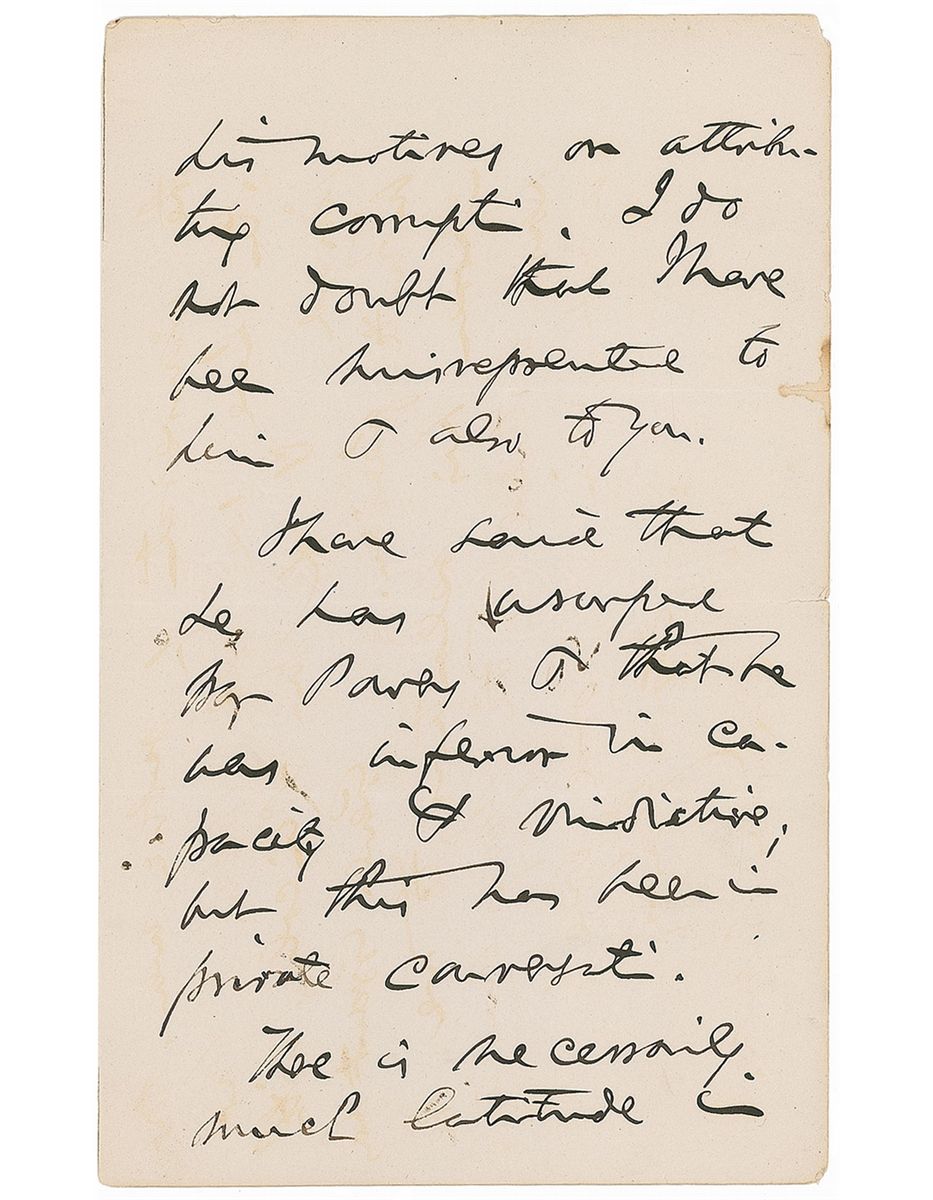 his motives or attribu-
ting corrupti. I do
not doubt that I have
been misrepresented to
him & also to you.
I have said that
he has usurped
Powers & that he
was inferior in ca-
pacity & vindictive,
but this has been in
private conversati.
There is necessarily
much latitude in